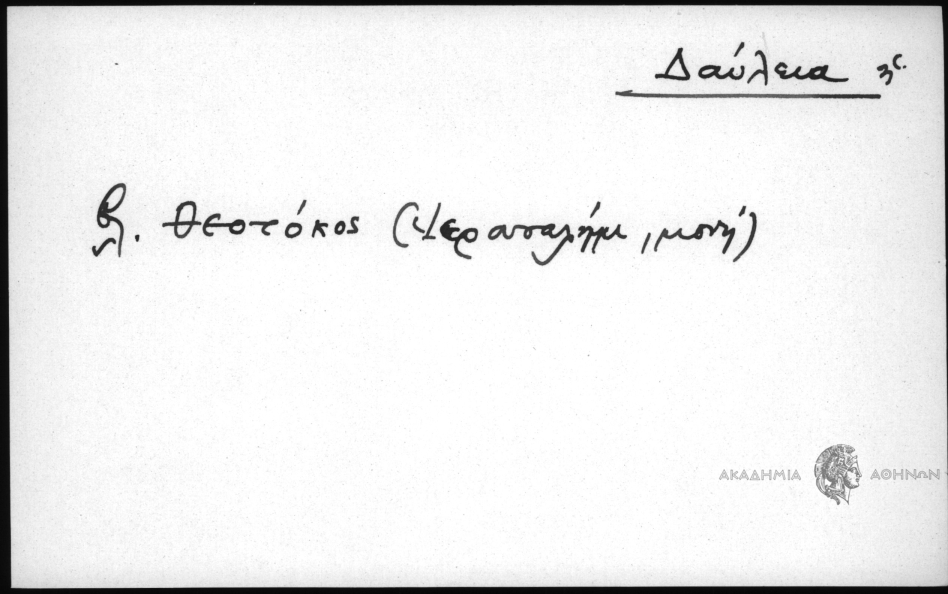 Δαύλεια
βλ. Θεοτόκος (Ἱερουσαλήμ, μονή)
ΑΚΑΔΗΜΙΑ ΑΘΗΝΩΝ